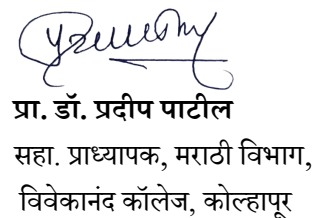 प्रा. डॉ. प्रदीप पाटील
सहा. प्राध्यापक, मराठी विभाग,
विवेकानंद कॉलेज, कोल्हापूर